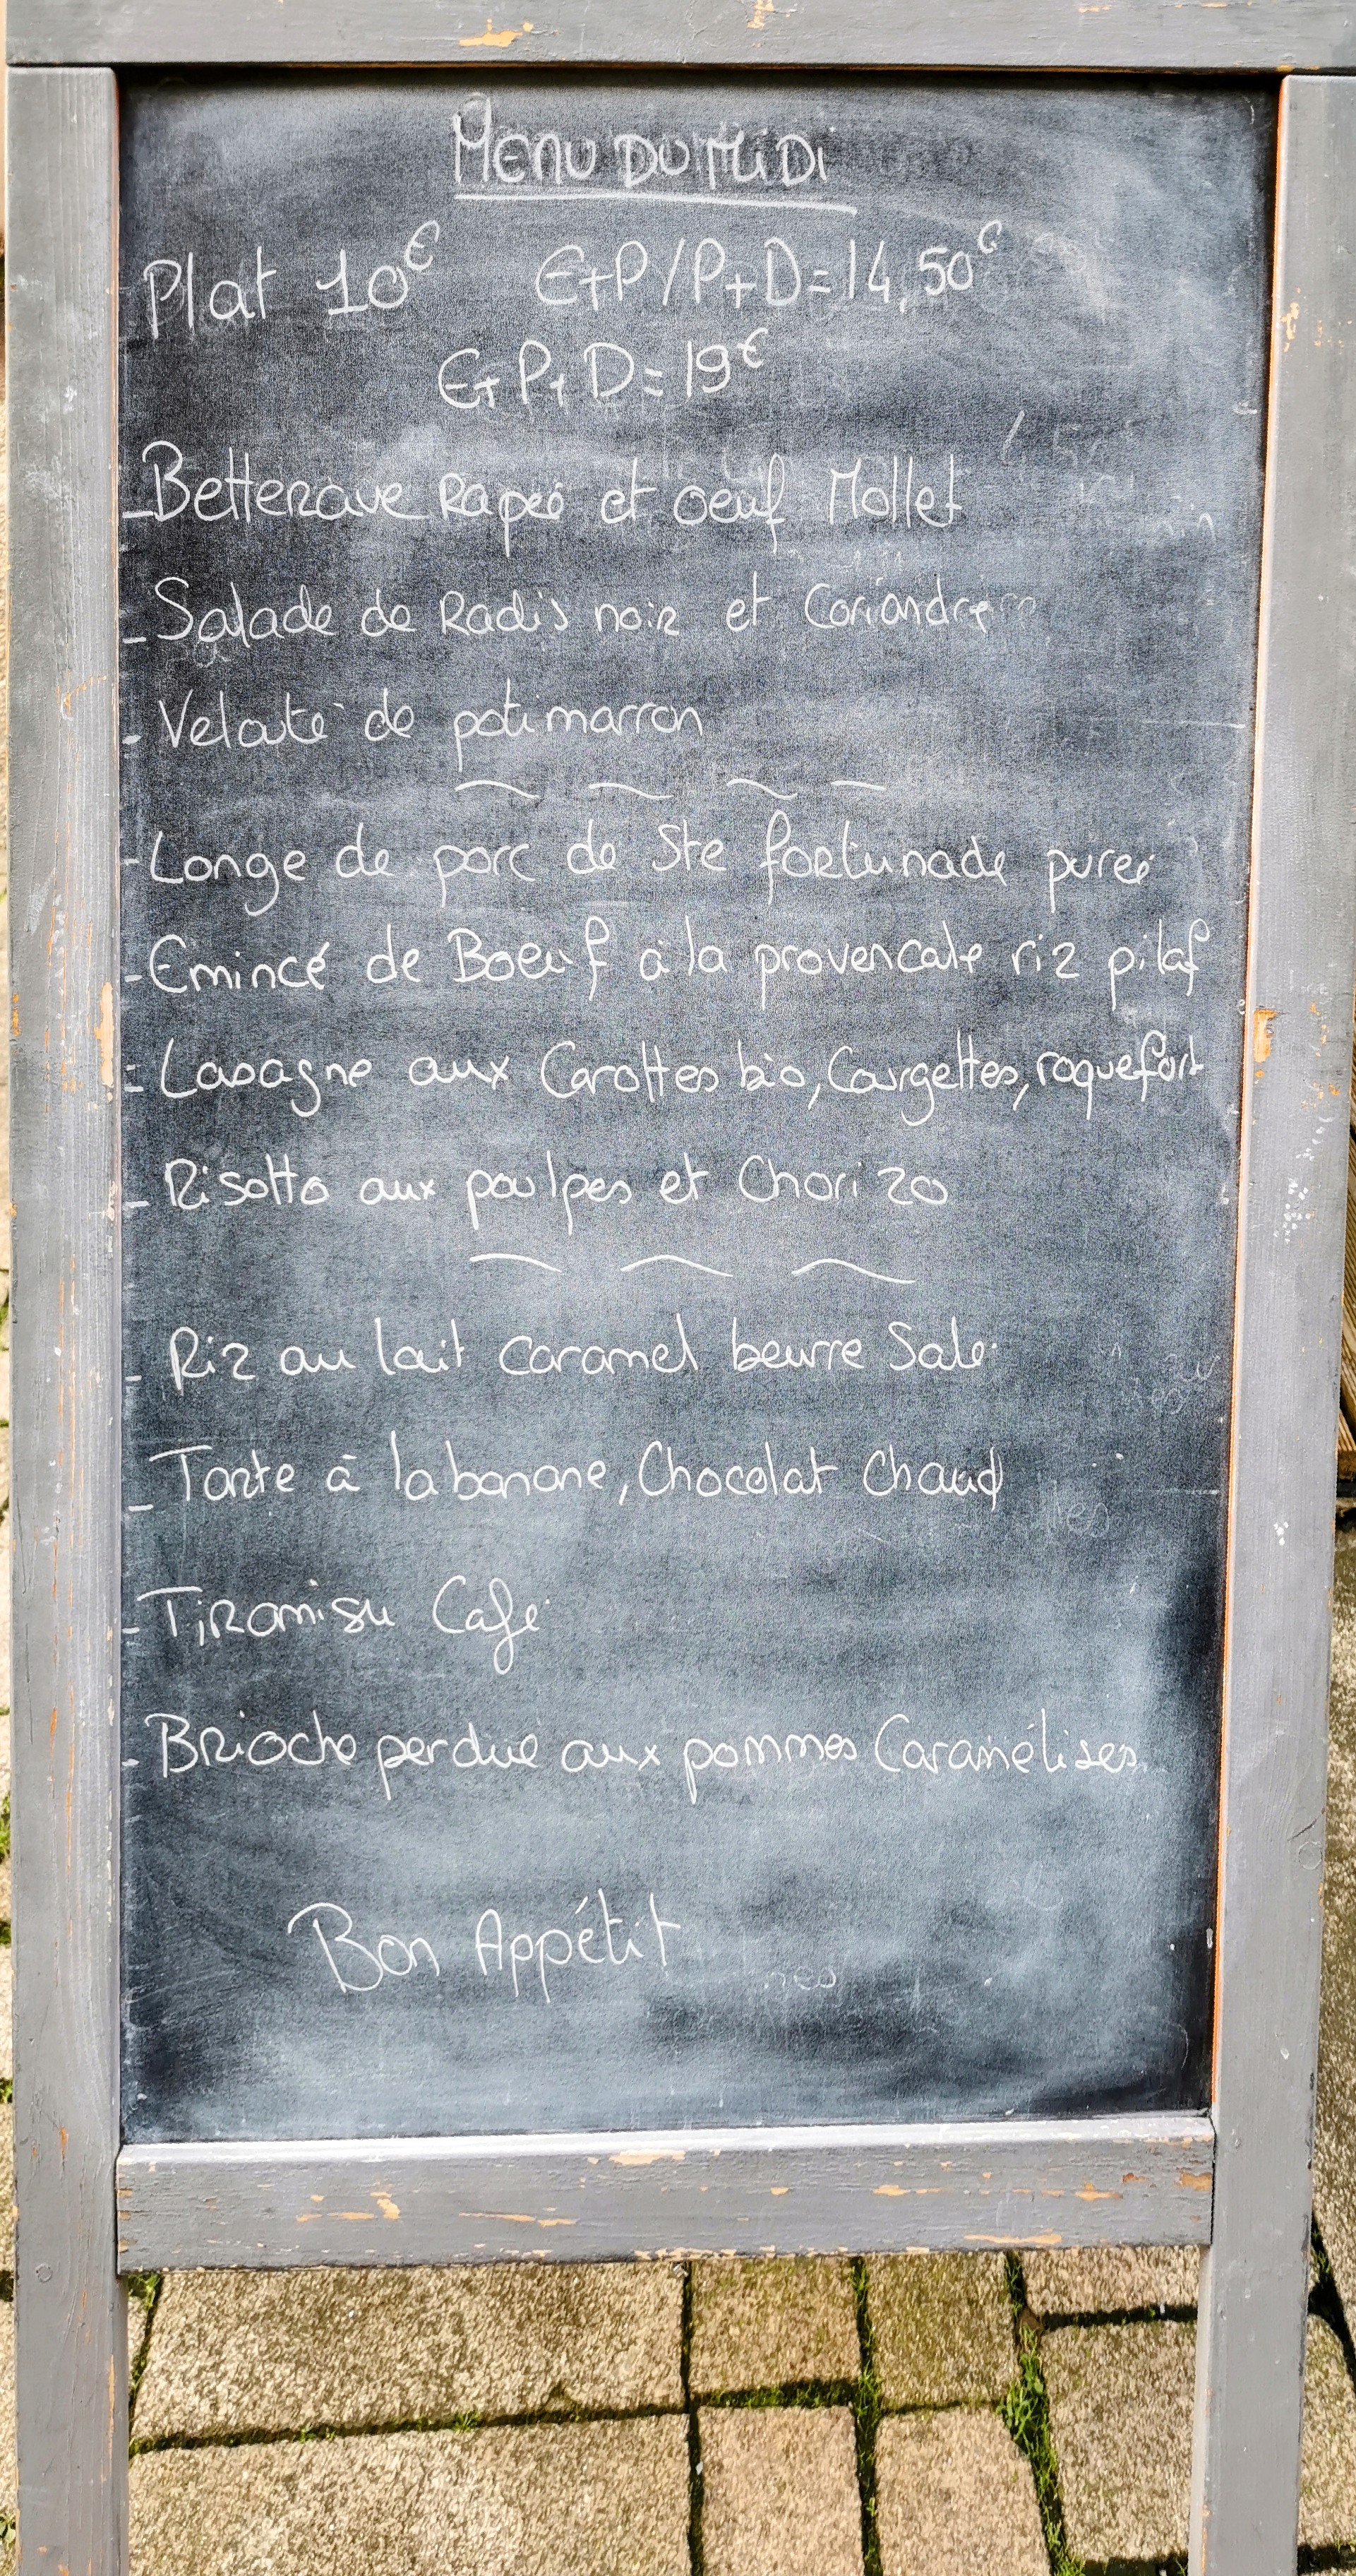 MENU DU MIDI
Plat 10€ E+P/P+D=14,50€
E+P+D=19€
-Betterave Rapée et oeuf Mollet
-Salade de Radis noir et Coriandre
-Velouté de potimarron
-Longe de porc de Ste fortunade purée
-Emincé de Boeuf à la provencale riz pilaf
-Lasagne aux Carottes bio, Courgettes, roquefort
-Risotto aux poulpes et Chorizo
-Riz au lait Caramel beurre Salé
-Tarte à la banane, Chocolat Chaud
-Tiramisu Café
-Brioche perdue aux pommes Caramélises
Bon Appétit